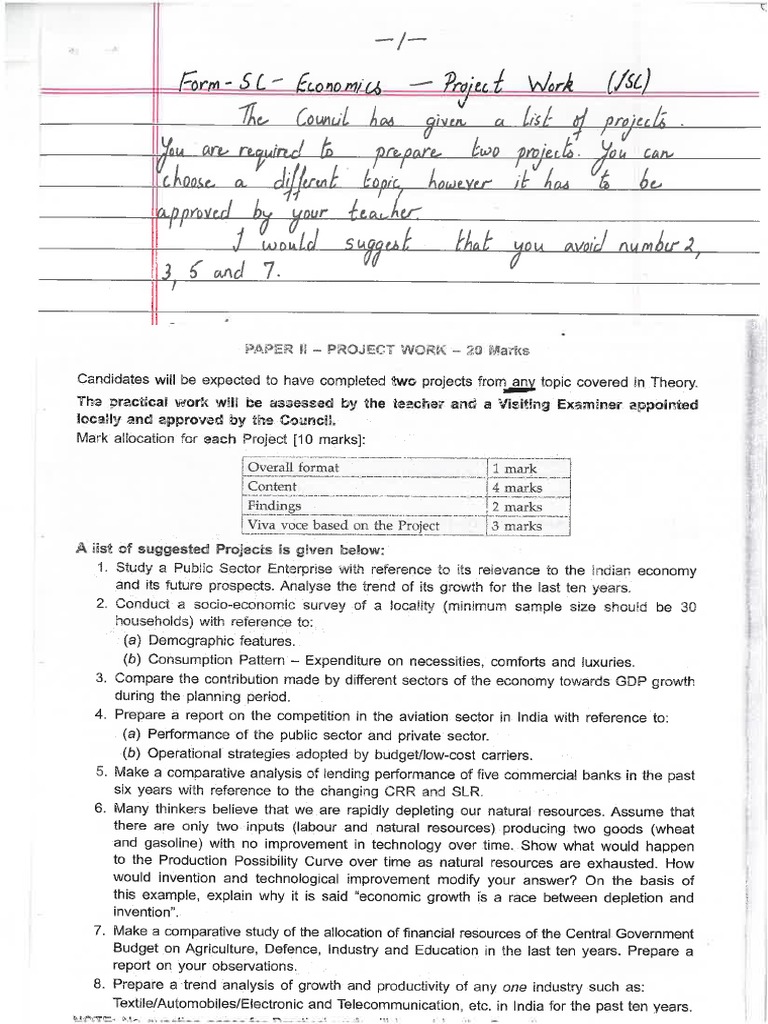 -1-
Form-SC- Economics - Project Work (ISC)
The Council has given a list of projects.
You are required to prepare two projects. You can
choose a different topic, however it has to be
approved by your teacher.
I would suggest that you avoid number 2,
3, 5 and 7.
PAPER II – PROJECT WORK – 20 Marks
Candidates will be expected to have completed two projects from any topic covered in Theory.
The practical work will be assessed by the teacher and a Visiting Examiner appointed
locally and approved by the Council.
Mark allocation for each Project [10 marks]:
Overall format 1 mark
Content 4 marks
Findings 2 marks
Viva voce based on the Project 3 marks
A list of suggested Projects is given below:
1. Study a Public Sector Enterprise with reference to its relevance to the Indian economy
and its future prospects. Analyse the trend of its growth for the last ten years.
2. Conduct a socio-economic survey of a locality (minimum sample size should be 30
households) with reference to:
(a) Demographic features.
(b) Consumption Pattern – Expenditure on necessities, comforts and luxuries.
3. Compare the contribution made by different sectors of the economy towards GDP growth
during the planning period.
4. Prepare a report on the competition in the aviation sector in India with reference to:
(a) Performance of the public sector and private sector.
(b) Operational strategies adopted by budget/low-cost carriers.
5. Make a comparative analysis of lending performance of five commercial banks in the past
six years with reference to the changing CRR and SLR.
6. Many thinkers believe that we are rapidly depleting our natural resources. Assume that
there are only two inputs (labour and natural resources) producing two goods (wheat
and gasoline) with no improvement in technology over time. Show what would happen
to the Production Possibility Curve over time as natural resources are exhausted. How
would invention and technological improvement modify your answer? On the basis of
this example, explain why it is said "economic growth is a race between depletion and
invention".
7. Make a comparative study of the allocation of financial resources of the Central Government
Budget on Agriculture, Defence, Industry and Education in the last ten years. Prepare a
report on your observations.
8. Prepare a trend analysis of growth and productivity of any one industry such as:
Textile/Automobiles/Electronic and Telecommunication, etc. in India for the past ten years.